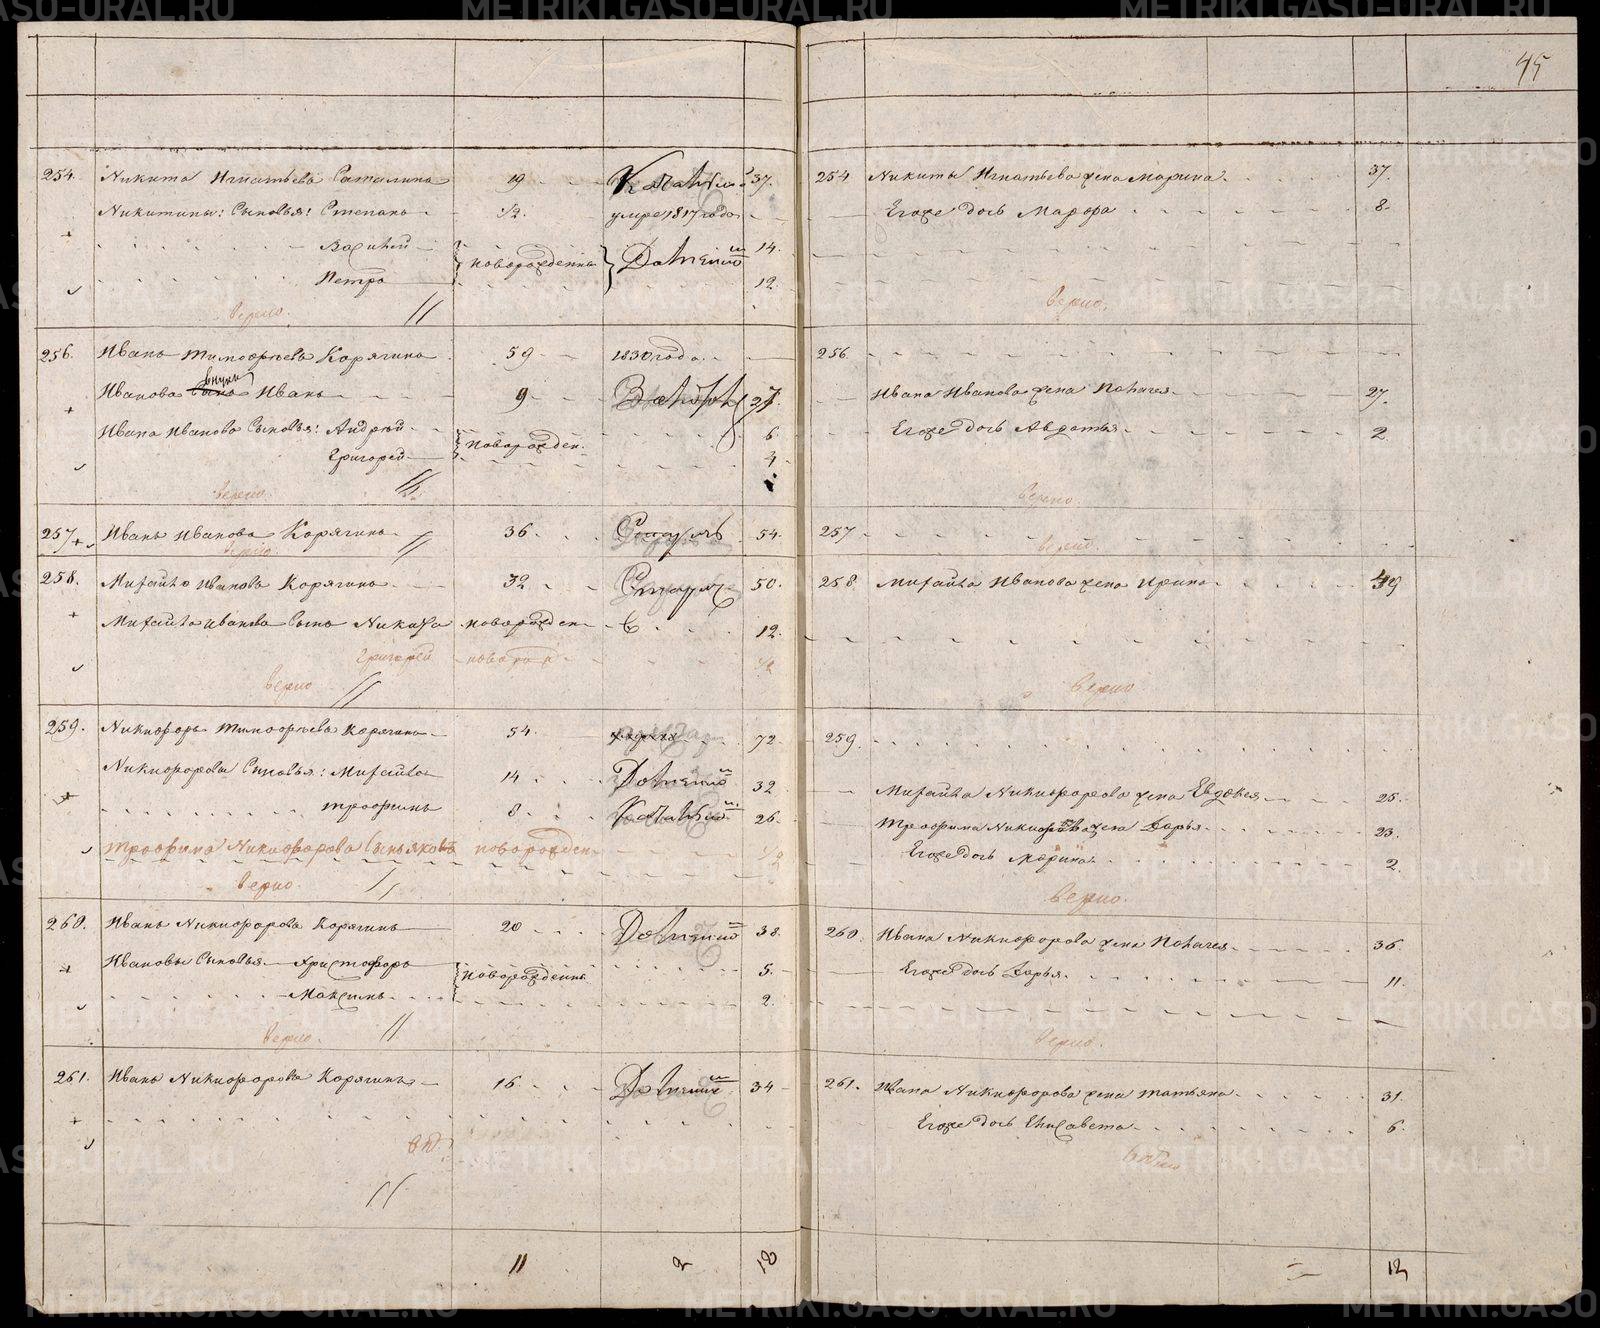 45
254. Никита Игнатьевъ 19 37.
Никитины: Сыновья: Степанъ 1/2. умре 1817 года
Василей 14.
новорожденны
Петръ 12.
верно.
256. Иванъ Тимофѣевъ Корягинъ 59 1830 года
внукъ
Ивановъ сынъ Иванъ 9 27.
Ивана Иванова Сыновья: Андрей 6
новорожден.
Григорей 4
верно.
257 Иванъ Ивановъ Корягинъ 36 54.
верно.
258. Михайло Ивановъ Корягинъ 32 50.
Михайла Иванова Сынъ новорожден 12.
Григорей новорож
верно
259. Никифоръ Тимофѣевъ Корягинъ 54 72
Никифоровы Сыновья: Михайло 14 32
Трофимъ 8 26
Трофима Никифорова Сынъ Яковъ новорожден
верно.
260. Иванъ Никифоровъ Корягинъ 20 38.
Ивановы Сыновья Христофоръ 5.
новорожденны
Максимъ 2.
верно.
261. Иванъ Никифоровъ Корягинъ 16 34
11 2 18
254 Никиты Игнатьева жена Марина 37.
Егоже дочь Марфа 8.
верно.
256.
Ивана Иванова жена Палагея 27.
Егоже дочь Авдотья 2
верно.
257
верно
258. Михайла Иванова жена Ирина 49
верно
259.
Михайла Никифорова жена Евдокея 25.
Трофима Никифорова жена Дарья 23.
Егоже дочь Марина 2.
верно.
260. Ивана Никифорова жена Палагея 36
Егоже дочь Дарья 11.
верно.
261. Ивана Никифорова жена Татьяна 31.
Егоже дочь Елисавета 6.
12
METRIKI.GASO-URAL.RU